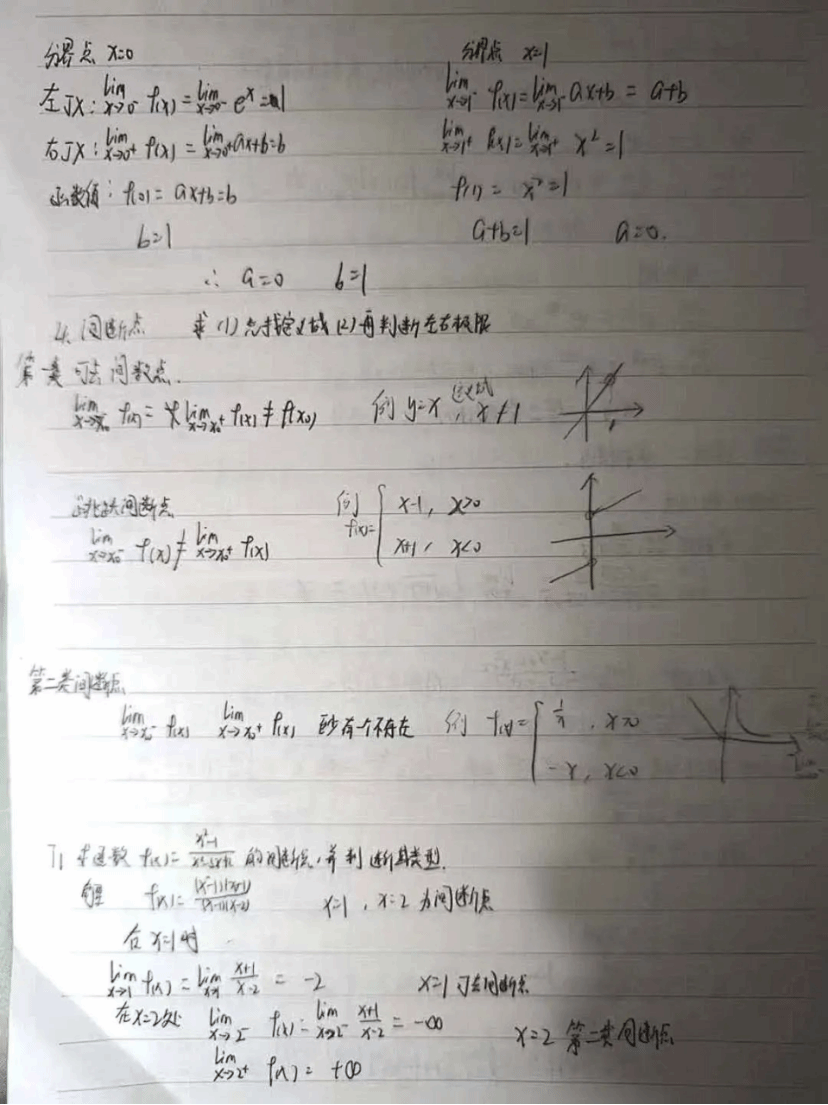 分界点 x=0
左极: lim x→0⁻ f(x) = lim x→0⁻ eˣ = 1
右极: lim x→0⁺ f(x) = lim x→0⁺ ax+b=b
函数值: f(0) = ax+b=b
b=1
分界点 x=1
lim x→1⁻ f(x) = lim x→1⁻ ax+b = a+b
lim x→1⁺ f(x) = lim x→1⁺ x² = 1
f(1) = x² = 1
a+b=1 a=0.
∴ a=0 b=1
4. 间断点 求 (1) 先找定义域 (2) 再判断左右极限
第一类 可去间断点.
lim x→x₀⁻ f(x) = lim x→x₀⁺ f(x) ≠ f(x₀) 例 y=x 定义域, x≠1
1
跳跃间断点 例 f(x)= { x-1, x>0
lim x→x₀⁻ f(x) ≠ lim x→x₀⁺ f(x) x+1, x<0
第二类间断点
lim x→x₀⁻ f(x) lim x→x₀⁺ f(x) 至少有一个不存在 例 f(x)= { 1/x, x>0
-x, x<0
求函数 f(x) = 的间断点, 并判断其类型.
解 f(x) = x=1, x=2 为间断点
在 x=1 时
lim x→1 f(x) = lim x→1 (x+1)/(x-2) = -2 x=1 可去间断点
在 x=2 处 lim x→2⁻ f(x) = lim x→2⁻ (x+1)/(x-2) = -∞ x=2 第二类间断点
lim x→2⁺ f(x) = +∞